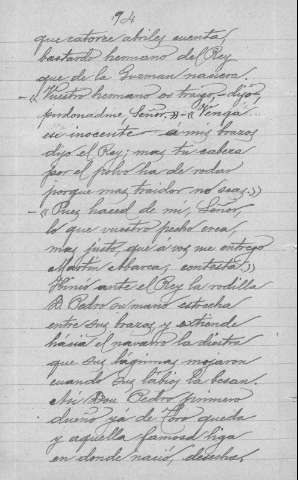 94
que catorce abriles cuenta,
bastardo hermano del Rey
que de la Guzman naciera.
-« Vuestro hermano os traigo - dijo,
perdonadme, Señor.» -« Venga
ese inocente á mis brazos
dijo el Rey; mas tu cabeza
por el polvo ha de rodar
porque mas traidor no seas.»
-« Pues haced de mí, Señor,
lo que vuestro pecho crea,
mas justo, que a vos me entrego
Martin Abarca, contesta.»
Hincó ante el Rey la rodilla
D. Pedro su mano estrecha
entre sus brazos y extiende
hácia el navarro la diestra
que sus lágrimas mojaron
cuando sus labios la besan.
Asi Don Pedro primero
dueño yá de Toro queda
y aquella famosa liga
en donde nació, deshecha,